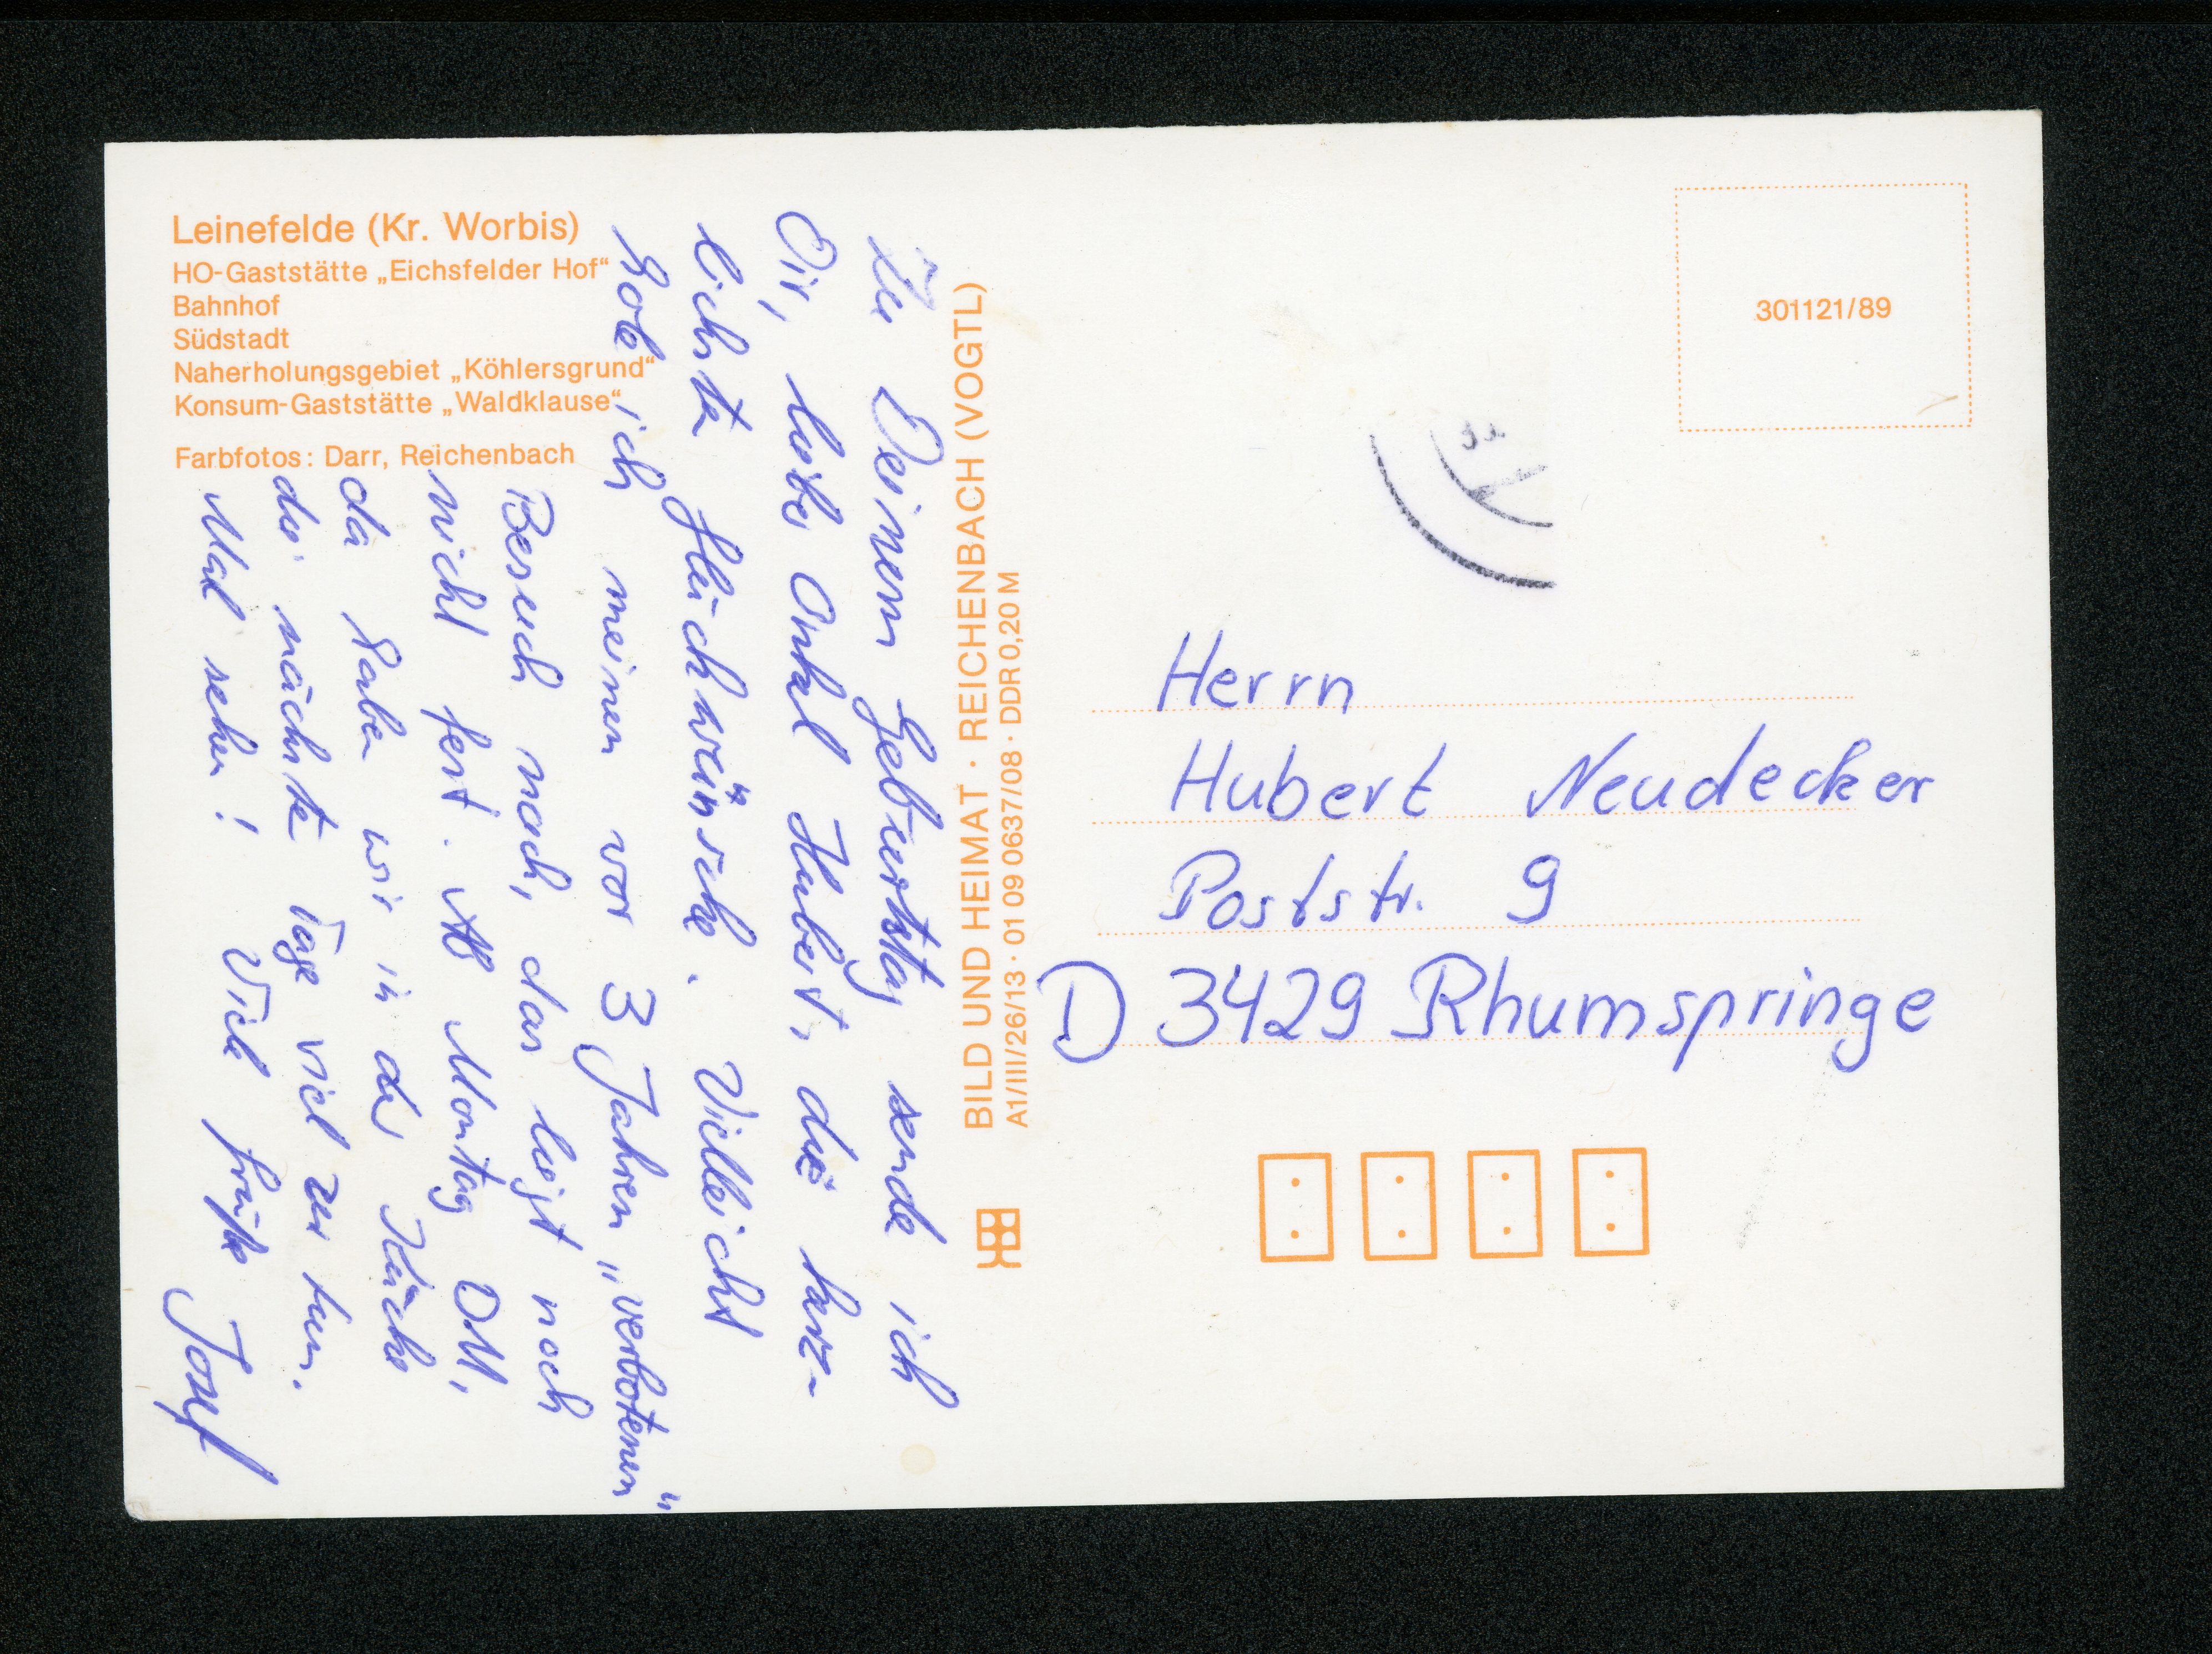 Leinefelde (Kr. Worbis)
HO-Gaststätte „Eichsfelder Hof“
Bahnhof
Südstadt
Naherholungsgebiet „Köhlersgrund“
Konsum-Gaststätte „Waldklause“
Farbfotos: Darr, Reichenbach
Zu Deinem Geburtstag sende ich
Dir, lieber Onkel Hubert, die herz-
lichste Glückwünsche. Vielleicht
hole ich meinen vor 3 Jahren „verbotenen“
Besuch nach, das liegt noch
nicht fest. Ab Montag DM,
da haben wir in der Küche
die nächste Tage viel zu tun.
Mal sehen! Viele Grüße Josef
BILD UND HEIMAT · REICHENBACH (VOGTL)
A1/III/26/13 · 01 09 0637/08 · DDR 0,20 M
301121/89
Herrn
Hubert Neudecker
Poststr. 9
D 3429 Rhumspringe